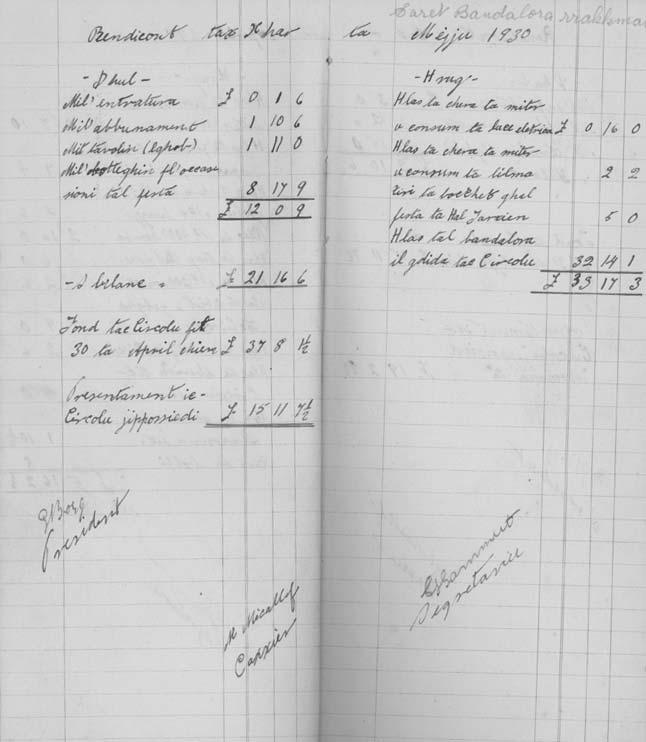 Saret Bandalora rrakkmar
Rendicont tax Xhar ta Mejju 1930
- Dhul -
Mil' entratura £ 0 1 6
Mil' abbunament 1 10 6
Mit tavolin (Lghob) 1 11 0
Mil' botteghin fl'occas-
sioni tal festa 8 17 9
£ 12 0 9
- I bilanc " £ 21 16 6
Fond tac Circolu fit
30 ta April chien £ 37 8 1½
Presentament ic-
Circolu jippossiedi £ 15 11 7½
G Borg
President
M Micallef
Caxxier
- Hrug -
Hlas ta chera ta miter
u consum ta luce eletrica £ 0 16 0
Hlas ta chera ta miter
u consum ta lilma 2 2
Tiri ta boccket ghal
festa ta Hal Tarxien 5 0
Hlas tal bandalora
il gdida tac Circolu 32 14 1
£ 33 17 3
Sammut
Segretariu